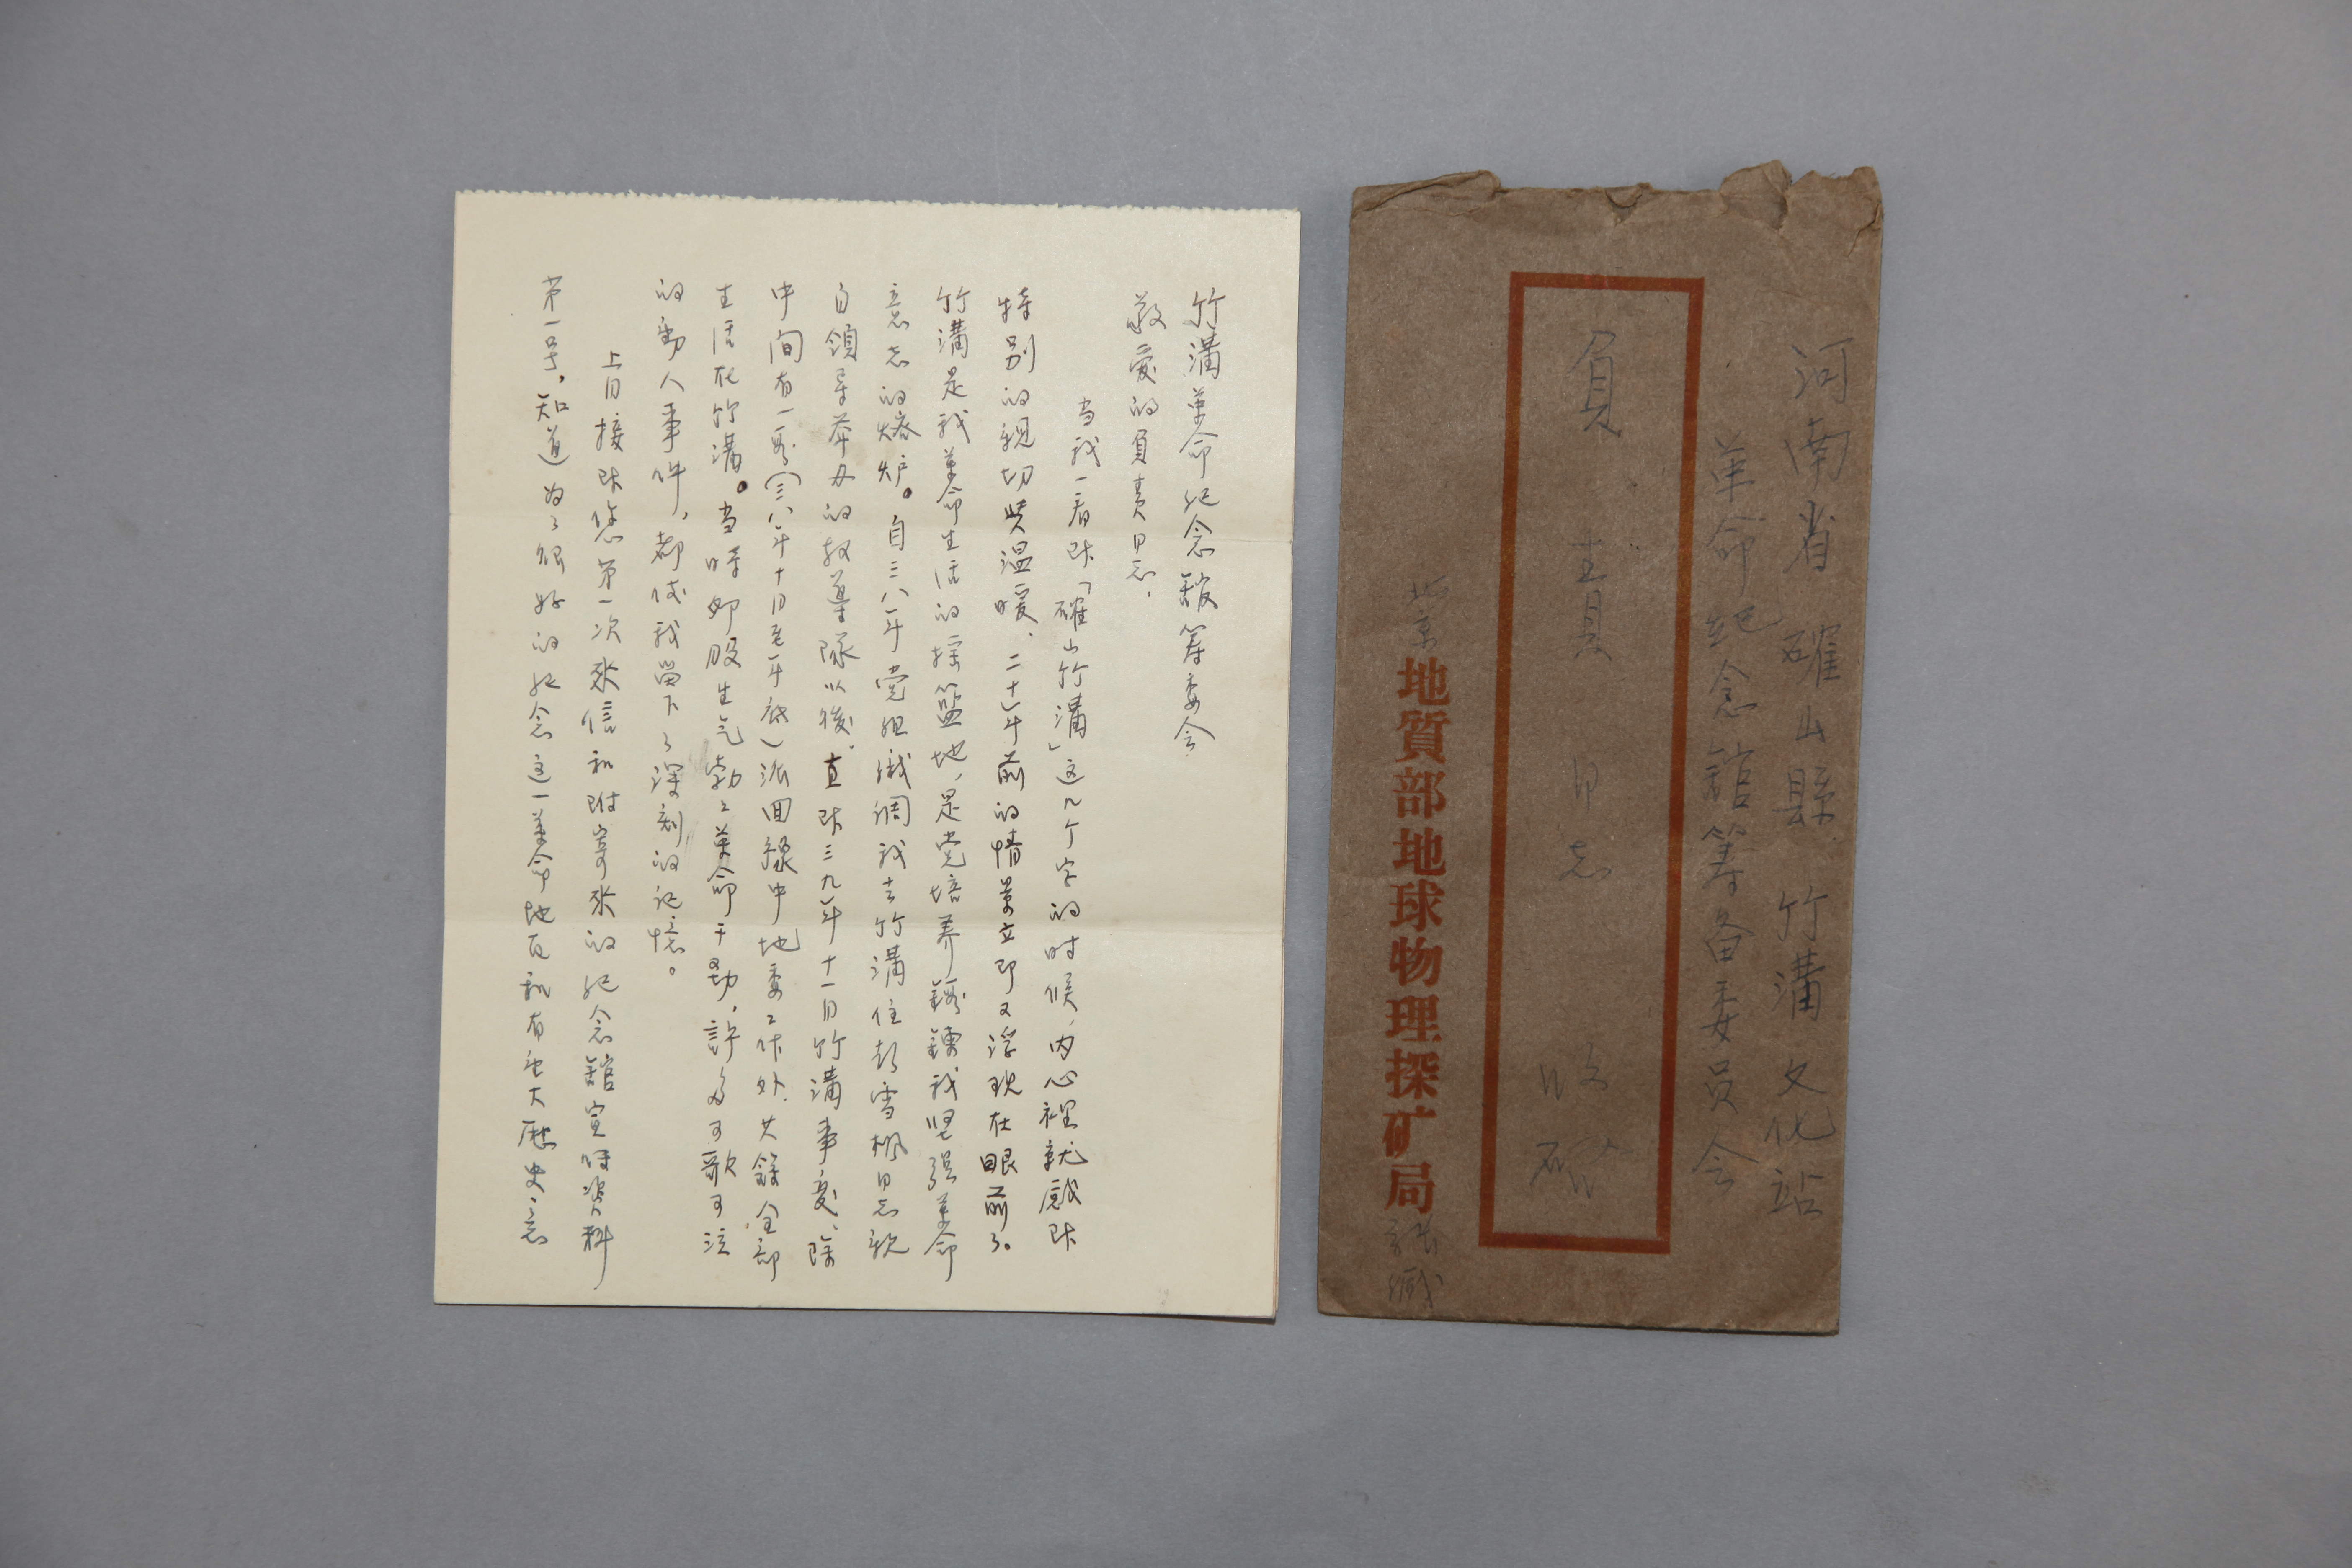 竹溝革命纪念馆筹委会
敬爱的負责同志：
当我一看到「確山竹溝」这几个字的时候，内心裡就感到
特别的親切與温暖，二十年前的情景立即又浮现在眼前了。
竹溝是我革命生活的摇籃地，是党培养鍛鍊我坚强革命
意志的熔炉。自三八年党組織調我去竹溝住彭雪枫同志親
自領导举办的教導隊以後，直到三九年十一月竹溝事变，除
中间有一段（三八年十月至年底）派回豫中地委工作外，其餘全部
生活在竹溝。当時那股生气勃々革命干勁，許多可歌可泣
的動人事件，都使我留下了深刻的记憶。
上月接到您第一次来信和附寄来的纪念館宣传资料
第一号，知道为了很好的纪念这一革命地区和有重大歷史意
河南省確山縣竹溝文化站
革命纪念館筹备委员会
負责同志 收啟
北京地質部地球物理探矿局 張緘